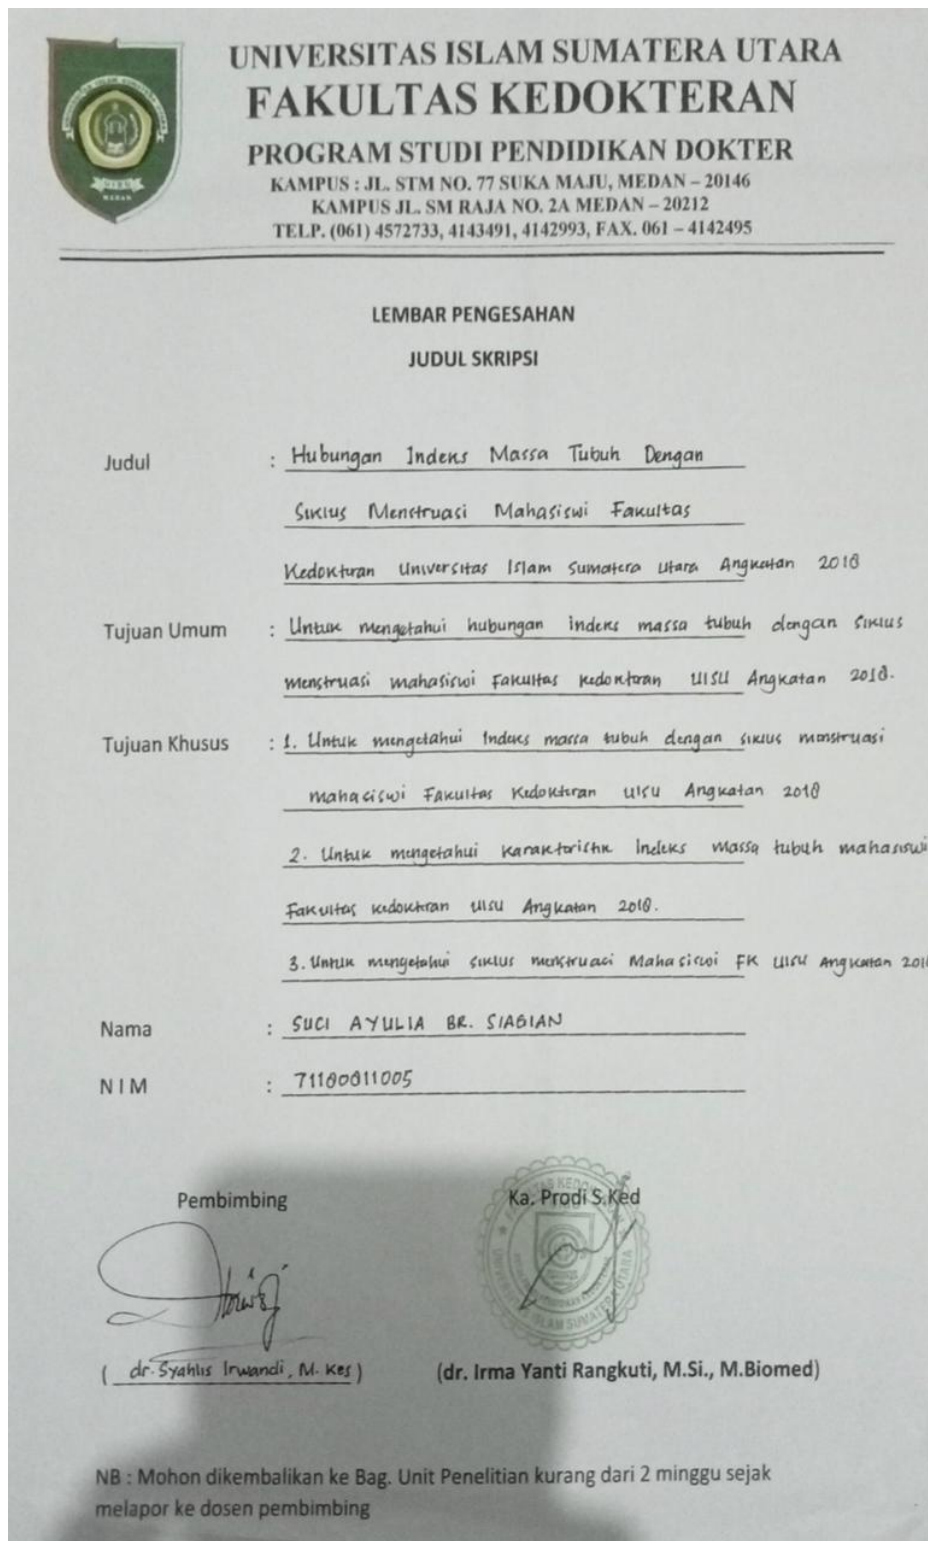 UNIVERSITAS ISLAM SUMATERA UTARA
FAKULTAS KEDOKTERAN
PROGRAM STUDI PENDIDIKAN DOKTER
KAMPUS : JL. STM NO. 77 SUKA MAJU, MEDAN – 20146
KAMPUS JL. SM RAJA NO. 2A MEDAN – 20212
TELP. (061) 4572733, 4143491, 4142993, FAX. 061 – 4142495
LEMBAR PENGESAHAN
JUDUL SKRIPSI
Judul : Hubungan Indeks Massa Tubuh Dengan
Siklus Menstruasi Mahasiswi Fakultas
Kedokteran Universitas Islam Sumatera Utara Angkatan 2018
Tujuan Umum : Untuk mengetahui hubungan indeks massa tubuh dengan siklus
menstruasi mahasiswi Fakultas Kedokteran UISU Angkatan 2018.
Tujuan Khusus : 1. Untuk mengetahui Indeks massa tubuh dengan siklus menstruasi
mahasiswi Fakultas Kedokteran UISU Angkatan 2018
2. Untuk mengetahui Karakteristik Indeks massa tubuh mahasiswi
Fakultas Kedokteran UISU Angkatan 2018.
3. Untuk mengetahui siklus menstruasi Mahasiswi FK UISU Angkatan
Nama : SUCI AYULIA BR. SIAGIAN
NIM : 71180811005
Pembimbing Ka. Prodi S.Ked
( dr. Syahlis Irwandi, M. Kes ) (dr. Irma Yanti Rangkuti, M.Si., M.Biomed)
NB : Mohon dikembalikan ke Bag. Unit Penelitian kurang dari 2 minggu sejak
melapor ke dosen pembimbing